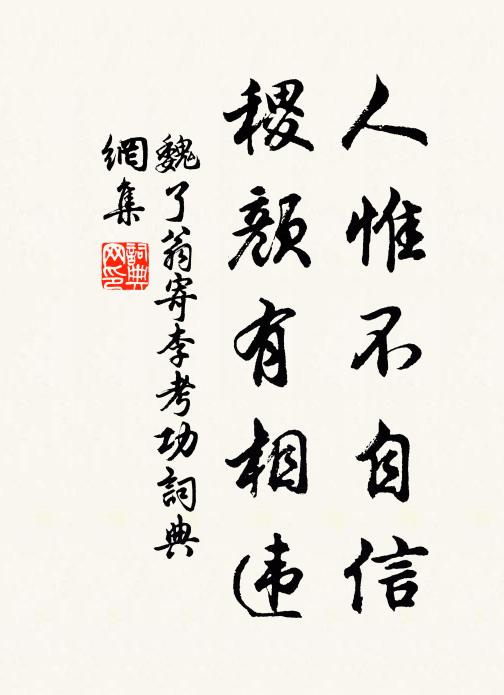 人惟不自信
稷颜有相违
魏了翁寄李考功詞典
網集
詞典
网印